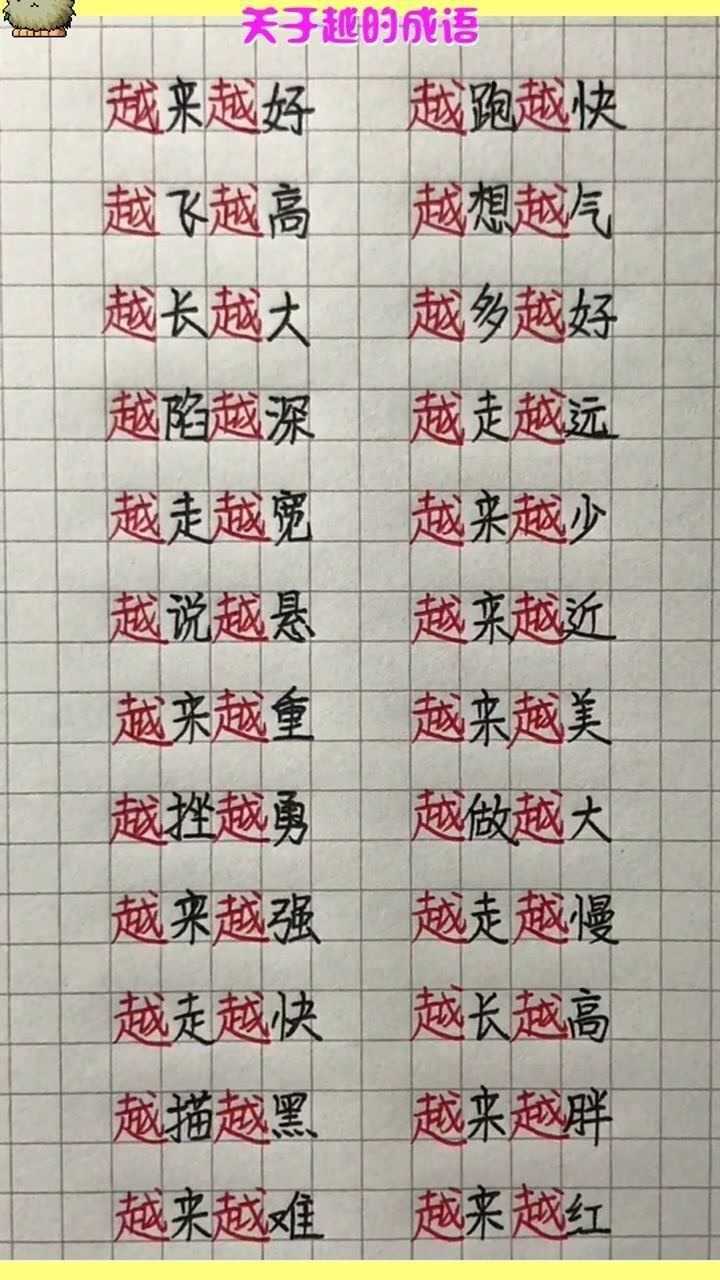 关于越的成语
越来越好 越跑越快
越飞越高 越想越气
越长越大 越多越好
越陷越深 越走越远
越走越宽 越来越少
越说越悬 越来越近
越来越重 越来越美
越挫越勇 越做越大
越来越强 越走越慢
越走越快 越长越高
越描越黑 越来越胖
越来越难 越来越红